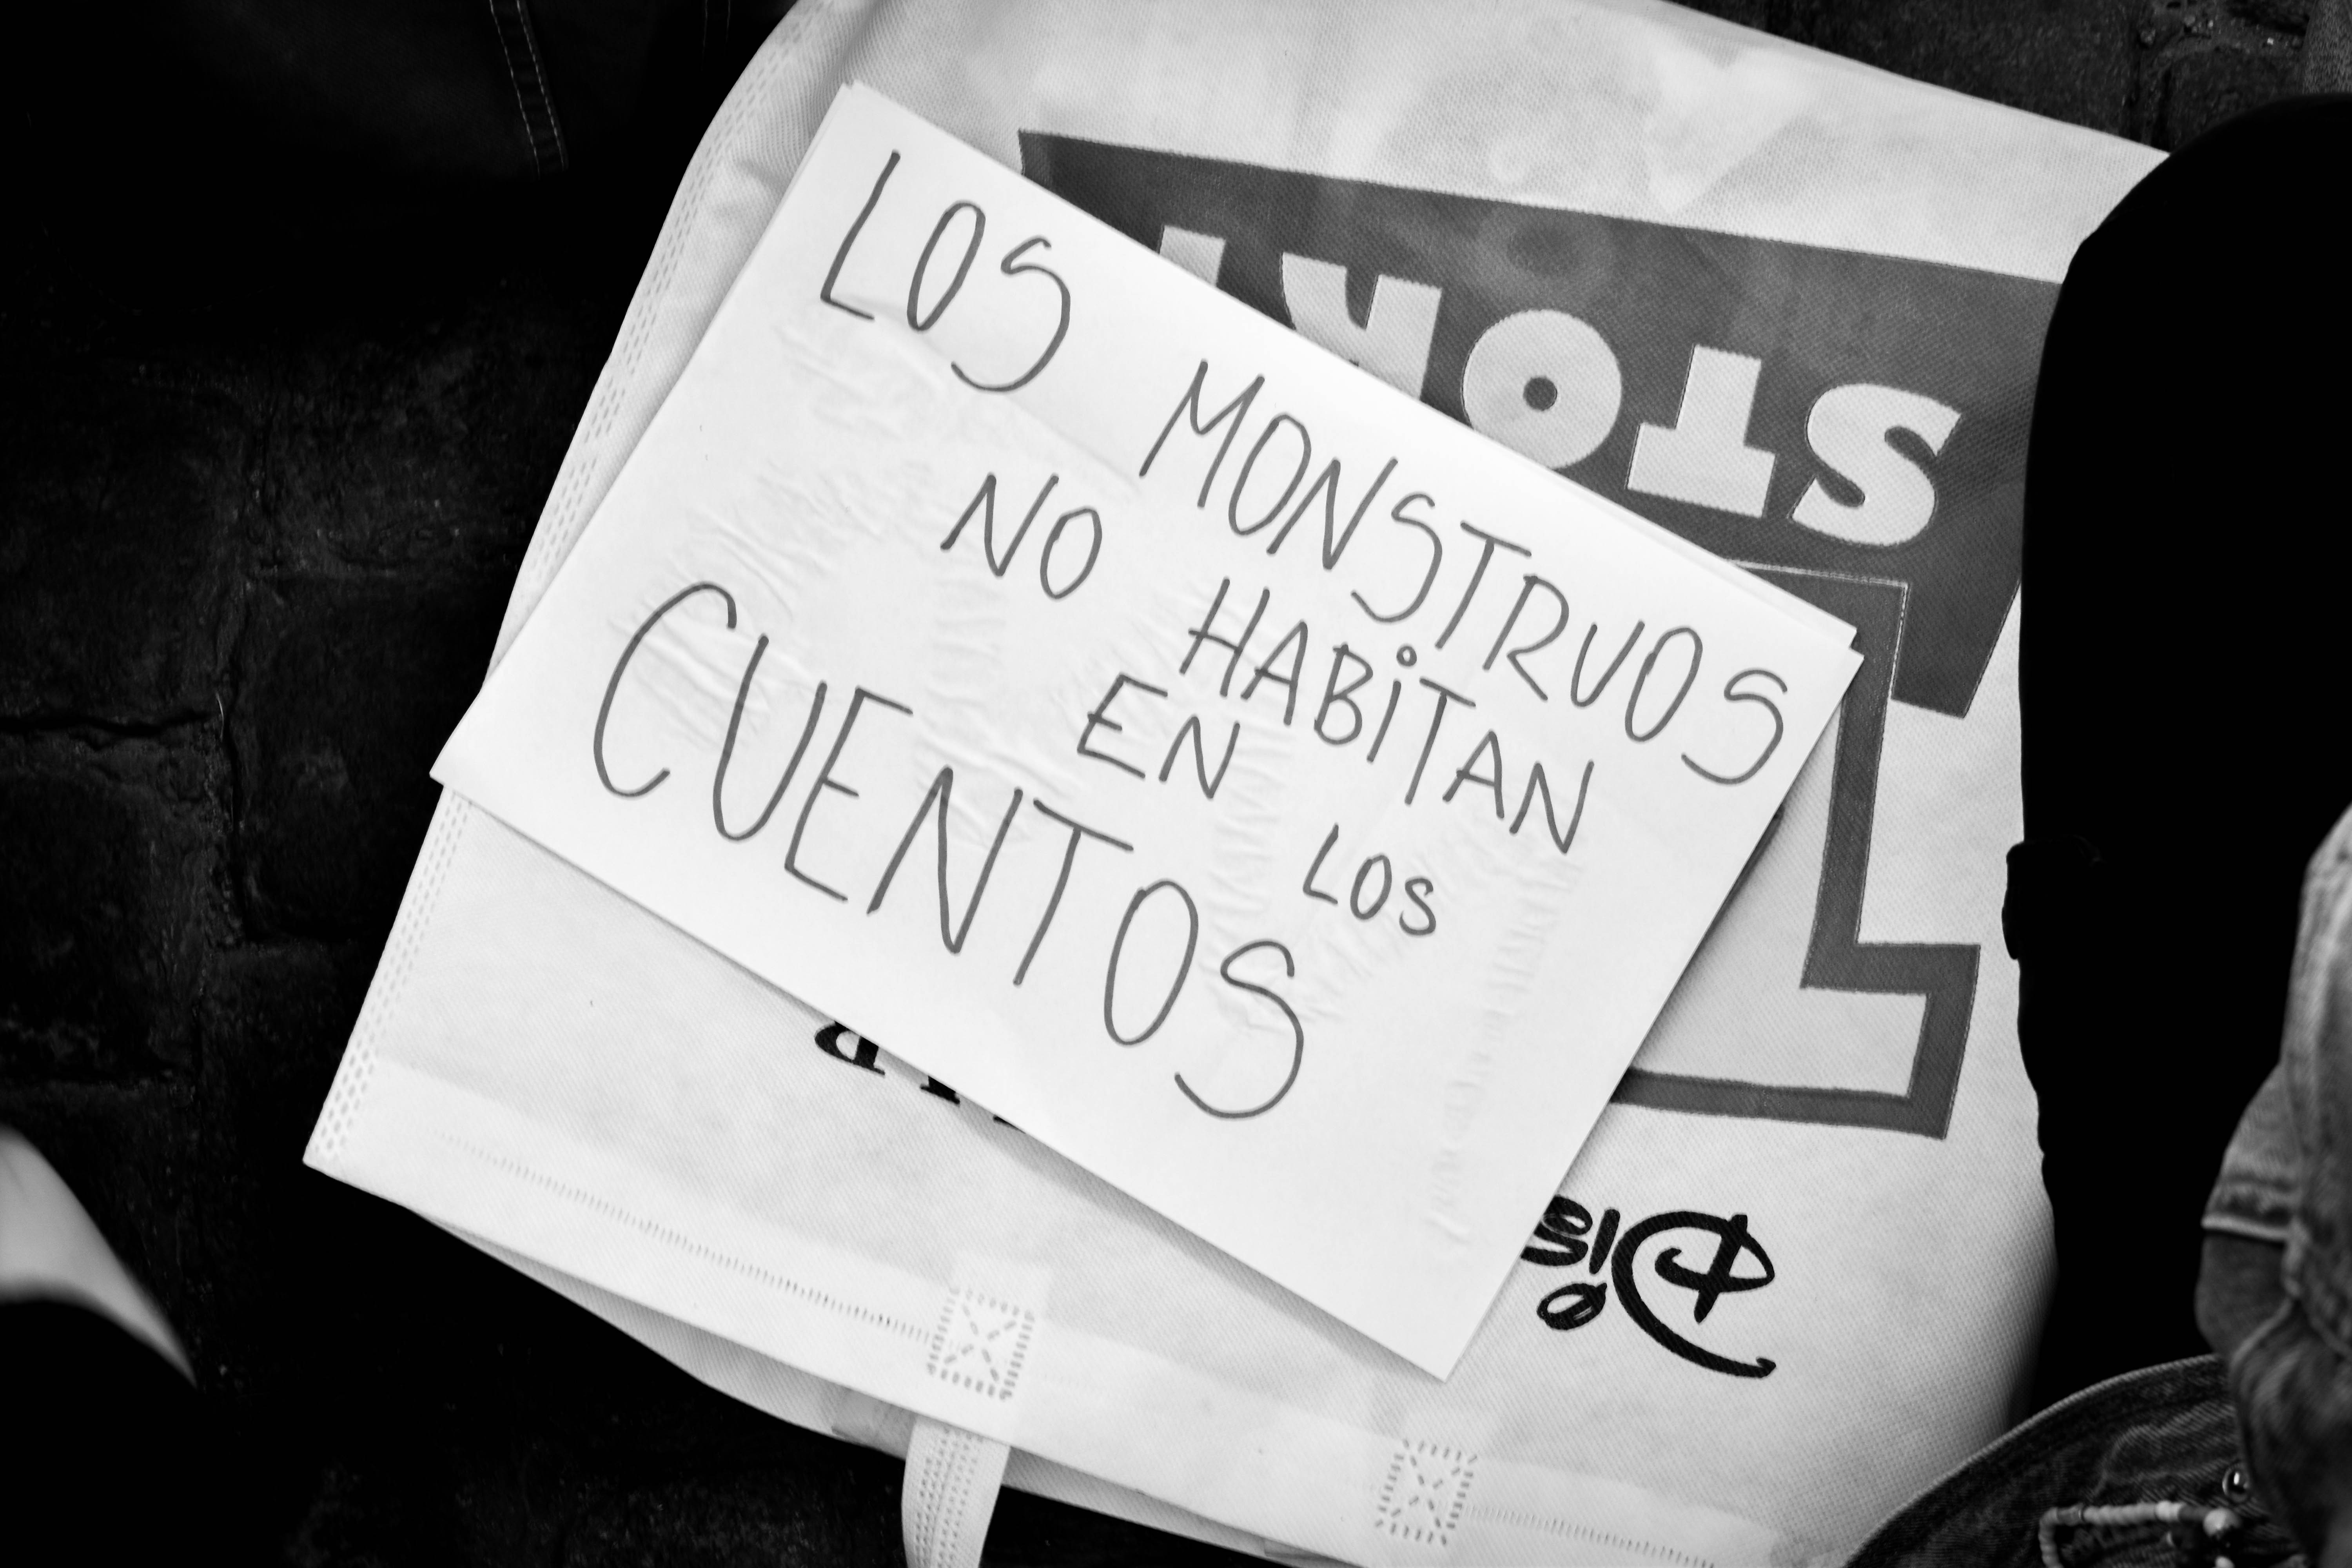 LOS MONSTRUOS
NO HABITAN
EN LOS
CUENTOS
STORY